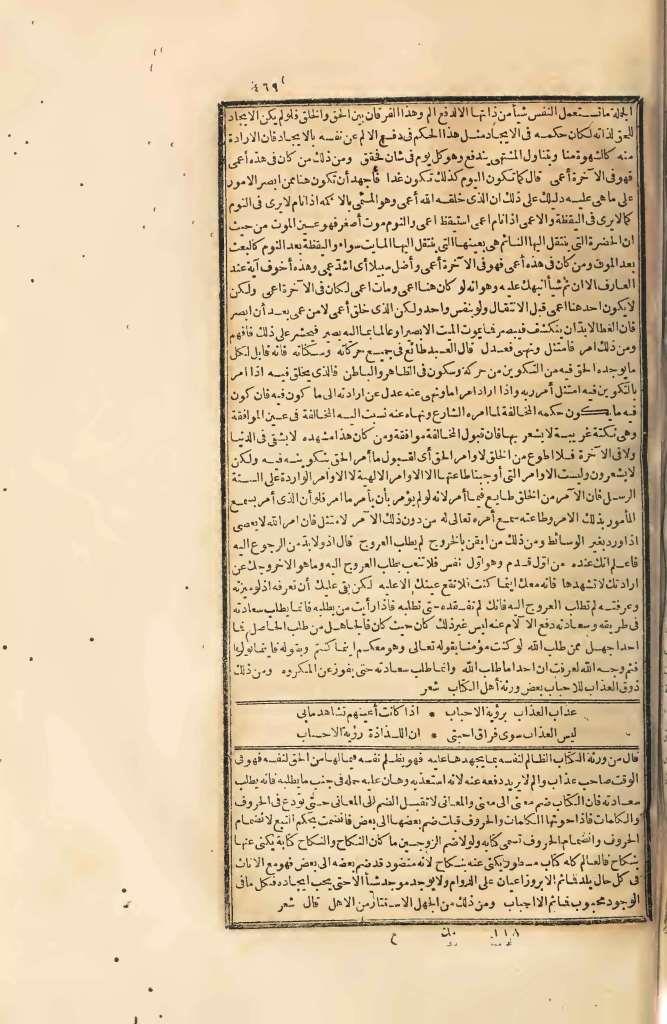 ٤٦٩
الجملة ما تستعمل النفس شيأ من ذاتها الا لدفع ألم وهذا الفرقان بين الحق والخلق فلو لم يكن الايجاد
للحق لذاته لكان حكمه فى الايجاد مثل هذا الحكم فى دفع الالم عن نفسه بالايجاد فان الارادة
منه كالشهوة منا وتناول المشتهى يندفع وهو كل يوم فى شان فحقق ومن ذلك من كان فى هذه أعمى
فهو فى الآخرة أعمى قال كما تكون اليوم كذلك تكون غدا فأجهد أن تكون هنا ممن ابصر الامور
على ما هى عليه دليلك على ذلك ان الذى خلقه الله أعمى وهو المسمى بالاكمه اذا نام لا يرى فى النوم
كما لا يرى فى اليقظة والاعمى اذا نام اعمى استيقظ اعمى والنوم موت أصغر فهو عين الموت من حيث
ان الحضرة التى ينتقل اليها النائم هى بعينها التى ينتقل اليها الميت سواء واليقظة بعد النوم كالبعث
بعد الموت ومن كان فى هذه أعمى فهو فى الآخرة أعمى وأضل سبيلا أى اشد عمى وهذه أخوف آية عند
العارف الا ان ثم شيأ انبهك عليه وهو انه لو كان هنا اعمى ومات اعمى لكان فى الآخرة اعمى ولكن
لا يكون احد هنا اعمى قبل الانتقال ولو بنفس واحد ولكن الذى خلق أعمى لا من عمى بعد أن ابصر
فان الغطاء لابد ان ينكشف فيبصر فما يموت الميت الا بصيرا وعالما بما اليه يصير فيحشر على ذلك فافهم
ومن ذلك امر فامتثل ونهى فعدل قال العبد طائع فى جميع حركاته وسكناته فانه قابل لكل
ما يوجده الحق فيه من التكوين من حركة وسكون فى الظاهر والباطن فالذى يخلق فيه اذا امر
بالتكوين فيه امتثل أمر ربه واذا اراد امرا ما ونهى عنه عدل عن ارادته الى ما كون فيه فان كون
فيه ما يكون حكمه المخالفة لما امره الشارع ونهاه عنه نسبت اليه المخالفة فى عين الموافقة
وهى نكتة غريبة لا يشعر بها فان قبول المخالفة موافقة ومن كان هذا مشهده لا يشقى فى الدنيا
ولا فى الآخرة فلا اطوع من الخلق لاوامر الحق أى لقبول ما أمر الحق بتكوينه فيه ولكن
لا يشعرون وليست الاوامر التى أوجبنا طاعتها الا الاوامر الالهية لا الاوامر الواردة على السنة
الرسل فان الآمر من الخلق طايع فيما أمر لانه لو لم يؤمر بأن يأمر ما امر فلو أن الذى أمر يسمع
المأمور بذلك الامر وطاعته سمع أمره تعالى له من دون ذلك الآمر لامتثل فان امر الله لا يعصى
اذا ورد بغير الوسائط ومن ذلك من ايقن بالخروج لم يطلب العروج قال اذ ولابد من الرجوع اليه
فاعلم انك عنده من اول قدم وهو اول نفس فلا تتعب بطلب العروج اليه وما هو الا خروجك عن
ارادتك لا تشهدها فانه معك اينما كنت فلا تقع عينك الا عليه لكن بقى عليك أن تعرفه اذ لو ميزته
وعرفته لم تطلب العروج اليه فانك لم تفقده حتى تطلبه فاذا رأيت من يطلبه فانما يطلب سعادته
فى طريقه وسعادته دفع الآلام عنه ليس غير ذلك كان حيث كان فالجاهل من طلب الحاصل فما
احد اجهل ممن طلب الله لو كنت مؤمنا بقوله تعالى وهو معكم اينما كنتم وبقوله فأينما تولوا
فثم وجه الله لعرفت ان احدا ما طلب الله وانما طلب سعادته حتى يفوز عن المكروه ومن ذلك
ذوق العذاب للاحباب بعض ورثة أهل الكتاب شعر
عذاب العذاب برؤية الاحباب * اذا كانت أعينهم تشاهد ما بى
ليس العذاب سوى فراق احبتى * ان اللذاذة رؤية الاحباب
قال من ورثة الكتاب الظالم لنفسه بما يجهدها عليه فهو يظلم نفسه فيما لها من الحق لنفسه فهو فى
الوقت صاحب عذاب وألم لا يريد دفعه عنه لانه استعذبه وهان عليه حمله فى جنب ما يطلبه فانه يطلب
سعادته فان الكتاب ضم معنى الى معنى والمعانى لا تقبل الضم الى المعانى حتى تودع فى الحروف
والكلمات فاذا حوتها الكلمات والحروف قبلت ضم بعضها الى بعض فانضمت بحكم التبع لانضمام
الحروف وانضمام الحروف تسمى كتابة ولولا ضم الزوجين ما كان النكاح والنكاح كتابة يكنى عنها
بنكاح فالعالم كله كتاب مسطور يكنى عنه بنكاح لانه منضود قد ضم بعضه الى بعض فهو مع الاناث
فى كل حال يلد فما ثم الا بروز اعيان على الدوام ولا يوجد موجد شيأ الا حتى يحب ايجاده فكل ما فى
الوجود محبوب فما ثم الا احباب ومن ذلك من الجهل الاستتار من الاهل قال شعر